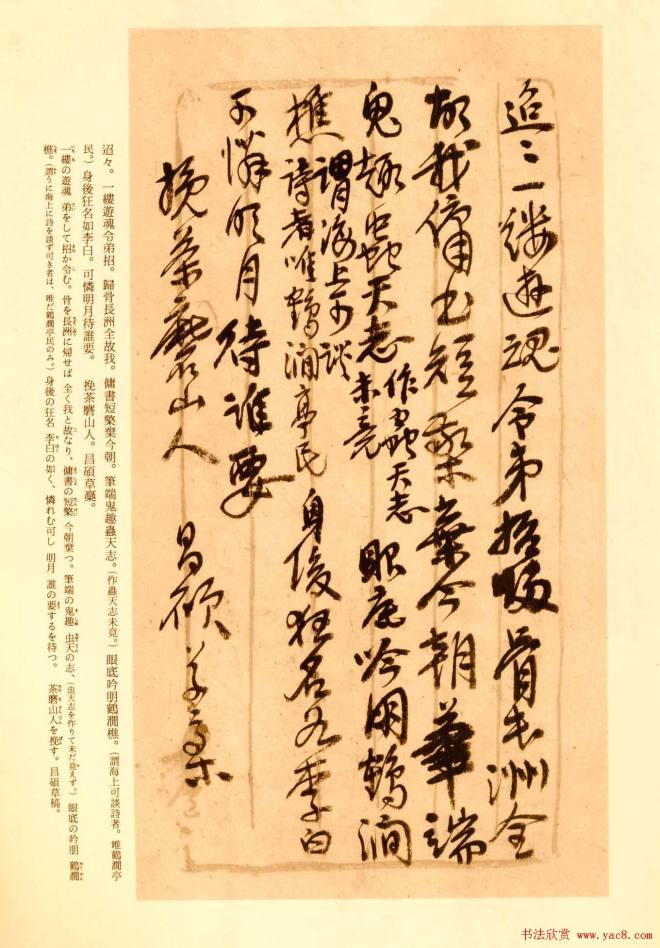 迢〻一縷遊魂令弟招歸骨長洲全
故我傭書短檠棄今朝筆端
鬼趣蟲天志作蟲天志未竟眼底吟朋鶴澗
樵謂海上可談詩者唯鶴澗亭民身後狂名如李白
可憐明月待誰要
挽茶磨山人 昌碩草稾
迢々。一縷遊魂令弟招。歸骨長洲全故我。傭書短檠棄今朝。筆端鬼趣蟲天志。(作蟲天志未竟。)眼底吟朋鶴澗樵。(謂海上可談詩者。唯鶴澗亭
民。)身後狂名如李白。可憐明月待誰要。 挽茶磨山人。昌碩草稾。
一縷の遊魂 弟をして招か令む。骨を長洲に帰せば 全く我と故なり、傭書の短檠 今朝棄つ。筆端の鬼趣 虫天の志、(虫天志を作りて未だ竟えず。)眼底の吟朋 鶴澗
樵。(謂うに海上に詩を談ず可き者は、唯だ鶴澗亭民のみ。)身後の狂名 李白の如く、憐れむ可し 明月 誰の要するを待つ。 茶磨山人を挽す。昌碩草稿。
书法欣赏 www.yac8.com